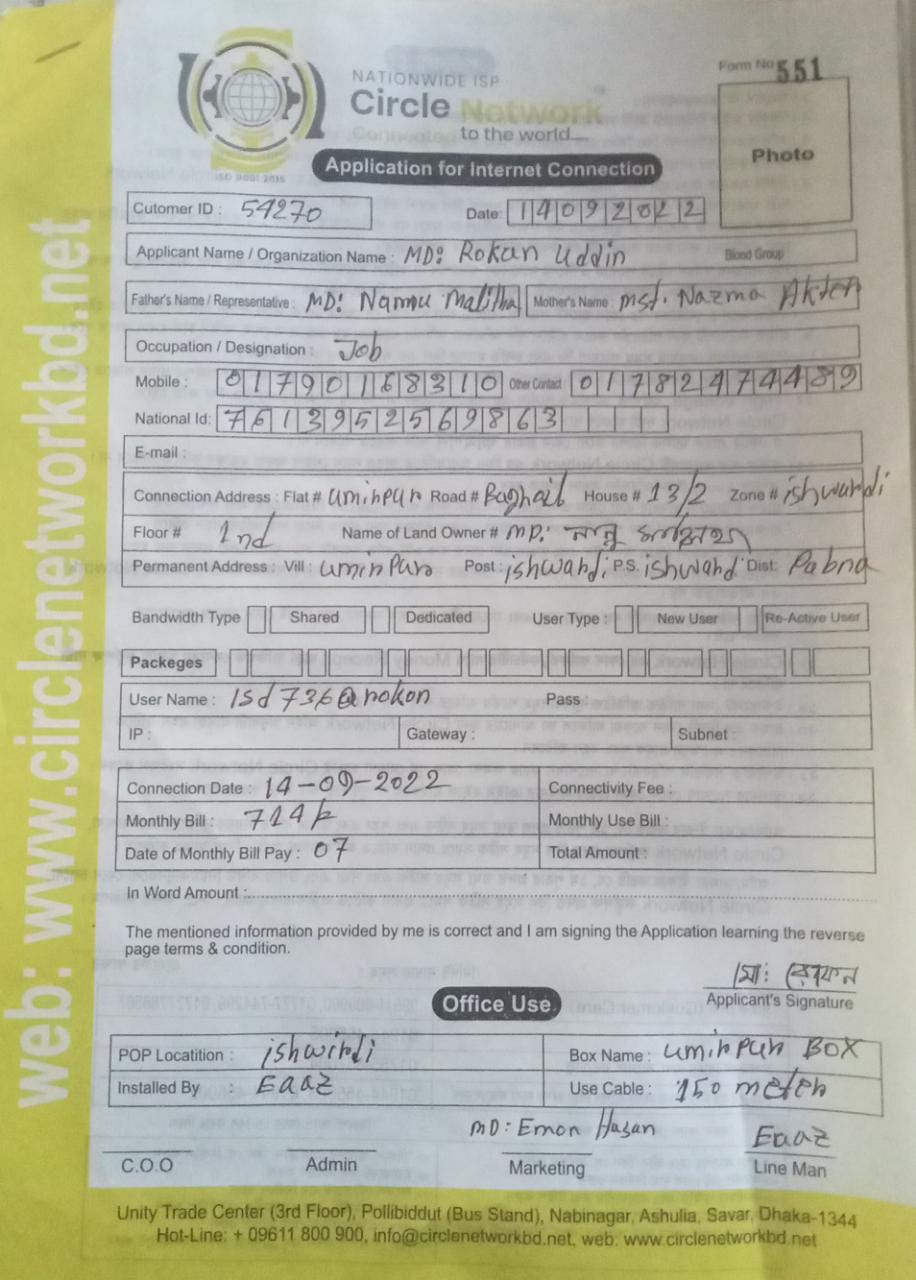 Form No 551
NATIONWIDE ISP
Circle Network
Connected to the world....
ISO 9001 2015
Application for Internet Connection
Photo
Cutomer ID : 54270 Date: 14092022
Applicant Name / Organization Name : MD: Rokan Uddin Blood Group
Father's Name / Representative : MD: Nannu Malitha Mother's Name : mst. Nazma Akter
Occupation / Designation : Job
Mobile : 01790168310 Other Contact 01782474489
National Id: 7613952569863
E-mail :
Connection Address : Flat # uminpur Road # Baghail House # 13/2 Zone # ishwardi
Floor # 1nd Name of Land Owner # MD: নান্নু
Permanent Address : Vill : uminpur Post : ishwardi P.S. ishwardi Dist: Pabna
Bandwidth Type Shared Dedicated User Type : New User Re-Active User
Packeges
User Name : Isd736@rokon Pass :
IP : Gateway : Subnet :
Connection Date : 14-09-2022 Connectivity Fee :
Monthly Bill : 714 Monthly Use Bill :
Date of Monthly Bill Pay : 07 Total Amount :
In Word Amount :
The mentioned information provided by me is correct and I am signing the Application learning the reverse
page terms & condition.
মো: রোকন
Applicant's Signature
Office Use
POP Locatition : ishwirdi Box Name : uminpur BOX
Installed By : Eaaz Use Cable : 150 meter
MD: Emon Hasan Eaaz
C.O.O Admin Marketing Line Man
Unity Trade Center (3rd Floor), Pollibiddut (Bus Stand), Nabinagar, Ashulia, Savar, Dhaka-1344
Hot-Line: + 09611 800 900, info@circlenetworkbd.net, web: www.circlenetworkbd.net
web: www.circlenetworkbd.net